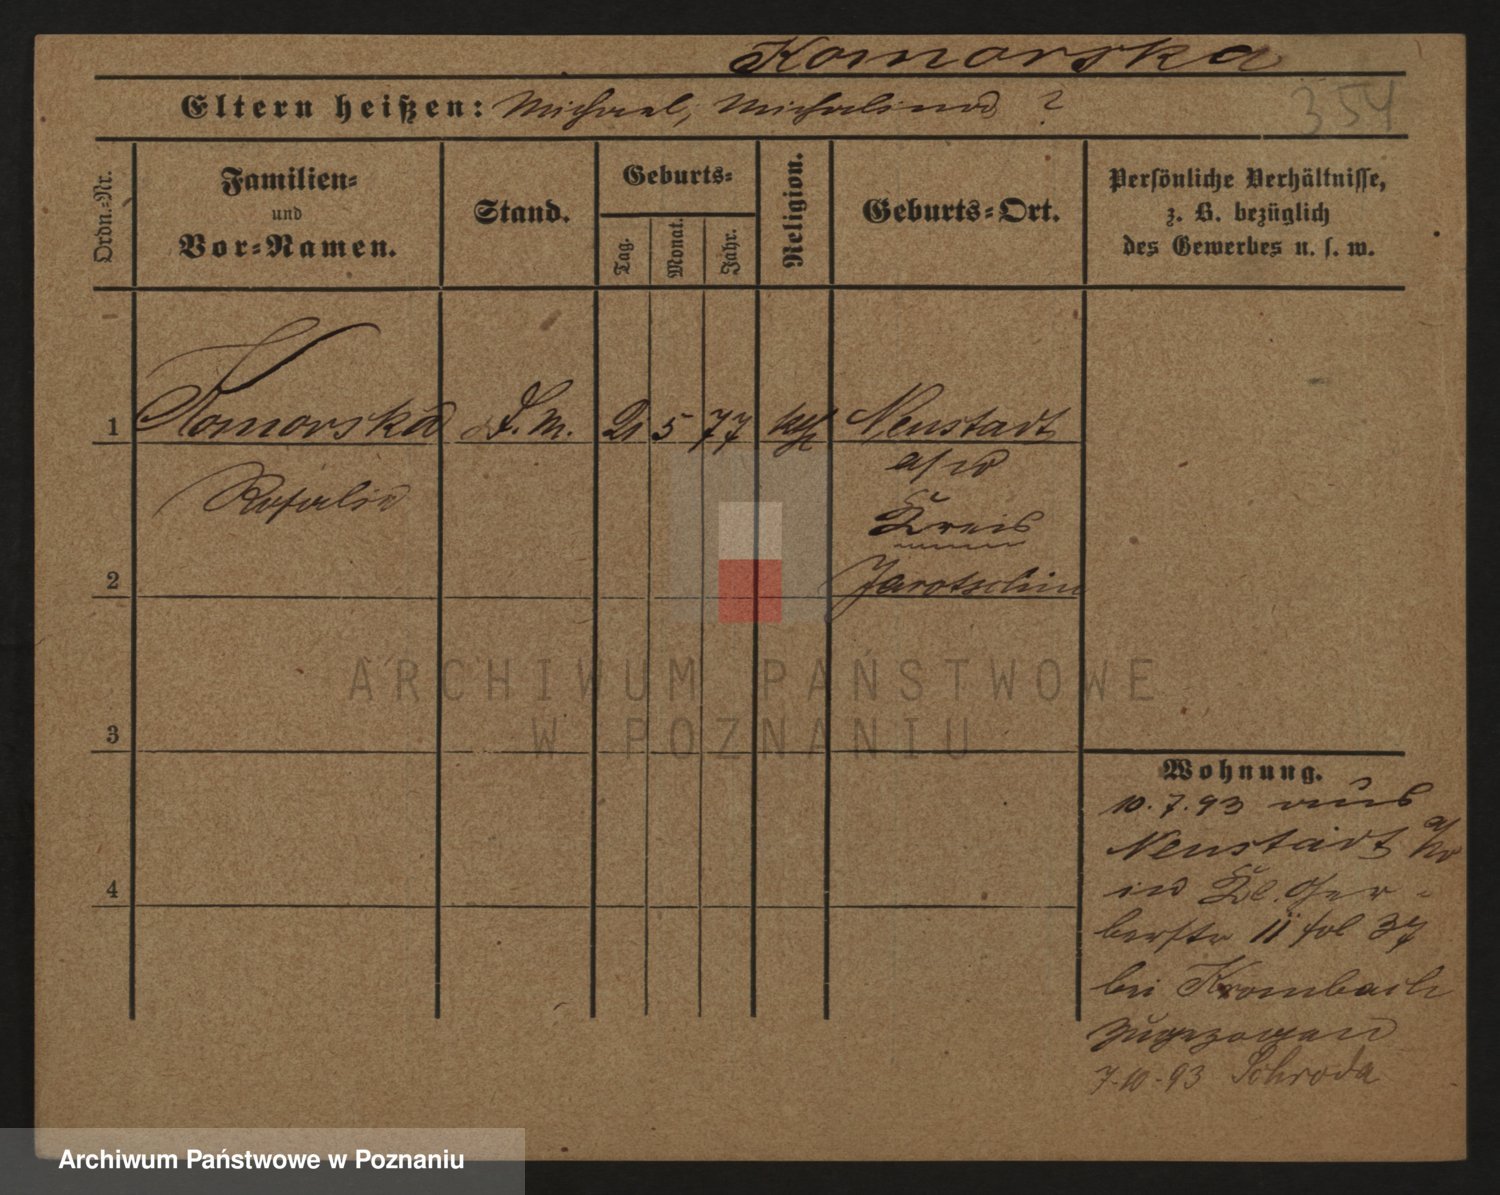 Komorska
Eltern heißen: Michael, Michalina ?
354
Ordn.-Nr.
Familien-
und
Vor-Namen.
Stand.
Geburts-
Tag.
Monat.
Jahr.
Religion.
Geburts-Ort.
Persönliche Verhältnisse,
z. B. bezüglich
des Gewerbes u. s. w.
1
Komorska D. M. 21 5 77 kath Neustadt
a/W
Rosalia
Kreis
2
Jarotschin
3
4
Wohnung.
10.7.93 aus
Neustadt a/W
in Kl. Ger-
berstr 11 fol 37
bei Krombach
zugezogen
7.10.93 Schroda
ARCHIWUM PAŃSTWOWE
W POZNANIU
Archiwum Państwowe w Poznaniu